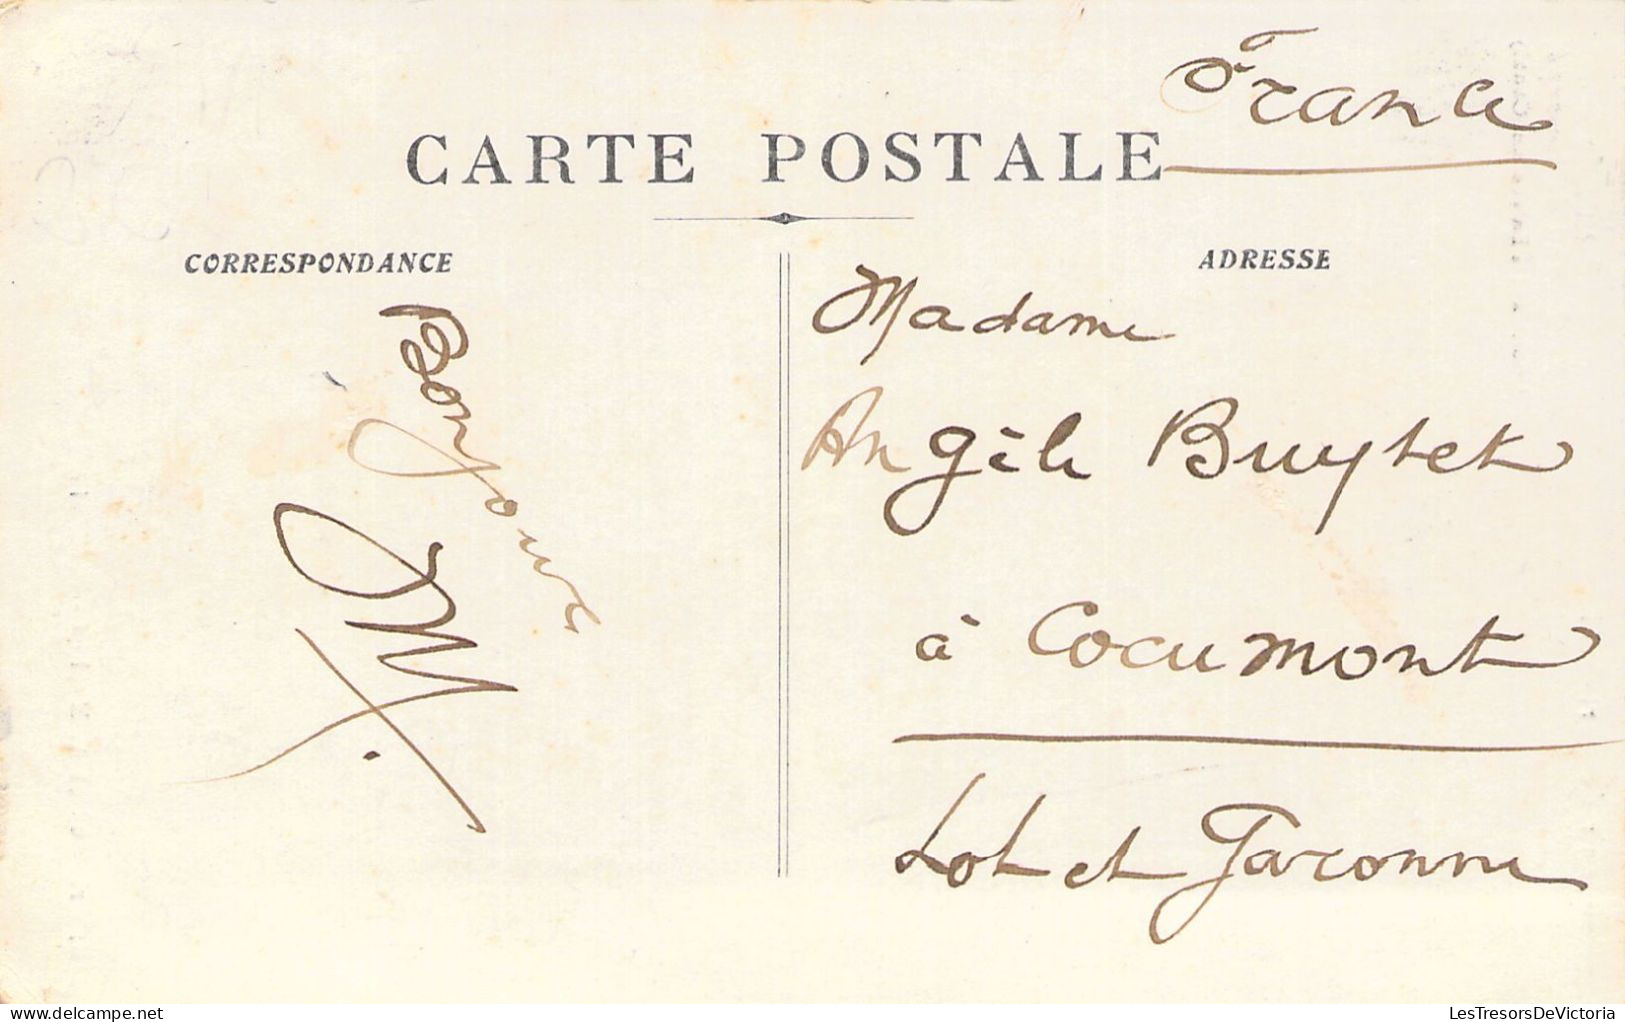 France
CARTE POSTALE
CORRESPONDANCE
ADRESSE
Bonjour
Madame
Angèle Buytet
à Cocumont
Lot et Garonne
LesTresorsDeVictoria